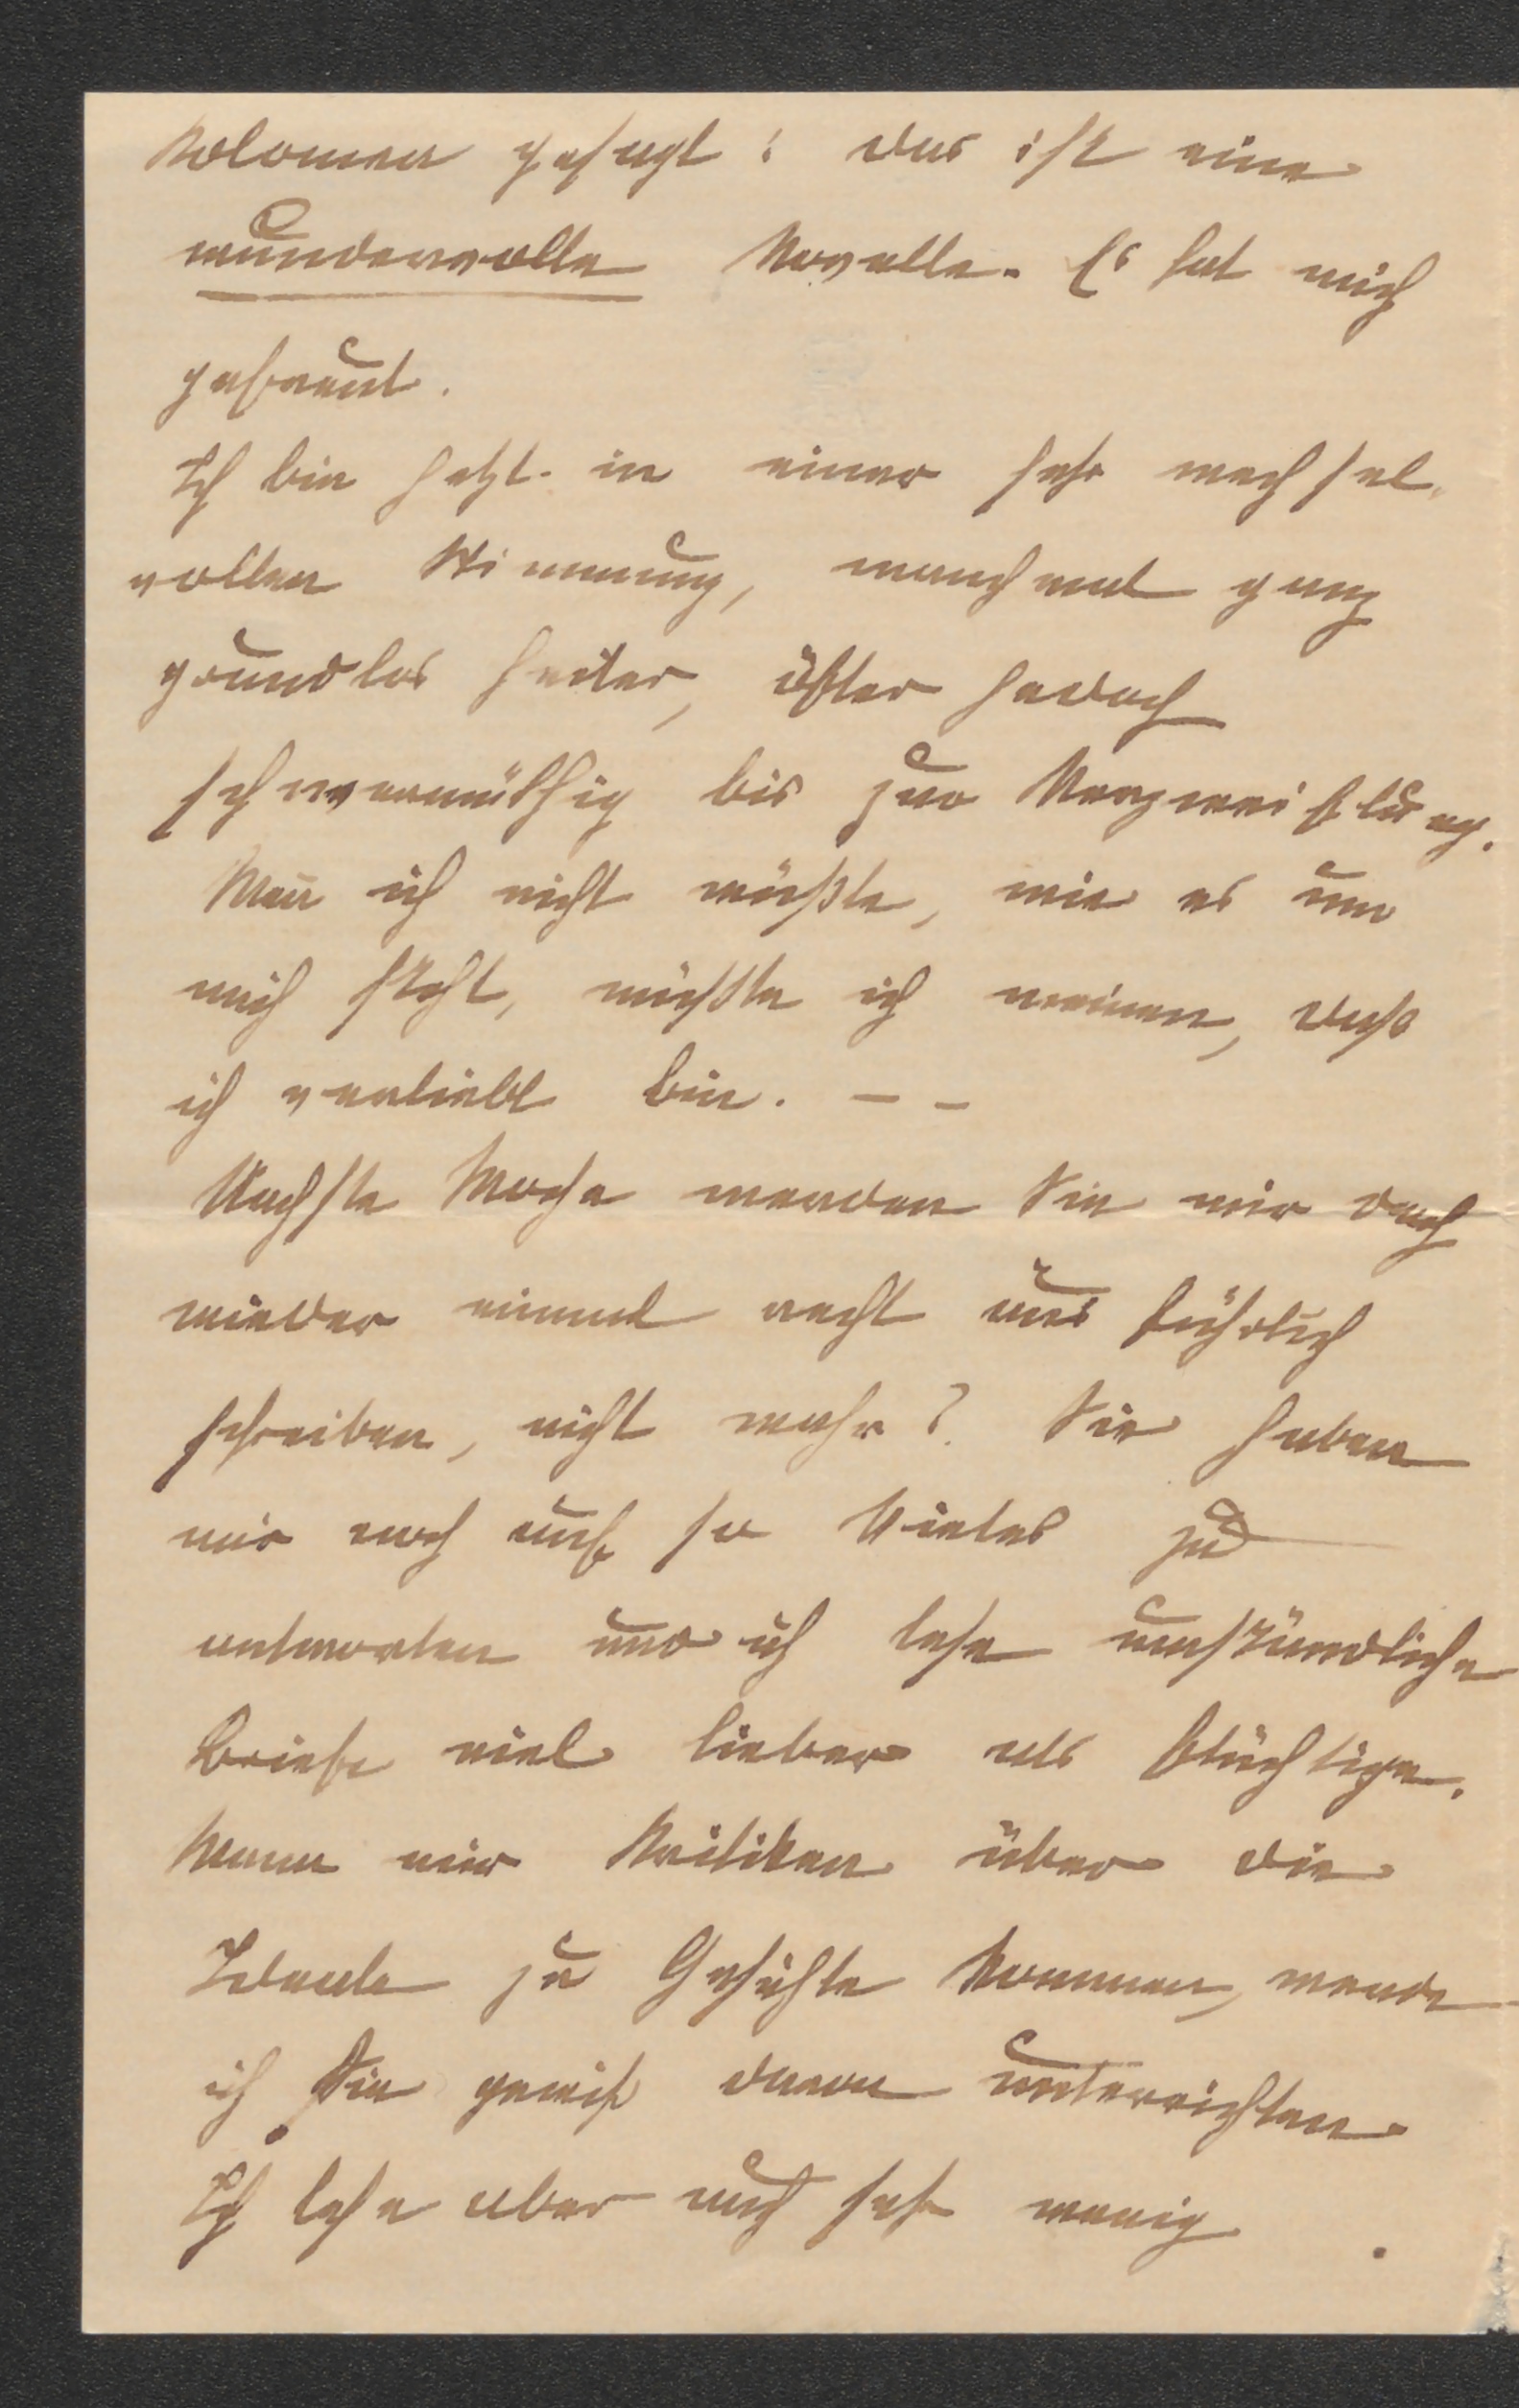 Kolomea gesagt: das ist eine
wundervolle Novelle. Es hat mich
gefreut.
Ich bin jetzt in einer sehr wechsel-
vollen Stimmung, manchmal ganz
grundlos heiter, öfter jedoch
schwermüthig bis zur Verzweiflung.
Wen̄ ich nicht wüßte, wie es um
mich steht, müßte ich meinen, daß
ich verliebt bin. – –
Nächste Woche werden Sie mir doch
wieder einmal recht ausführlich
schreiben, nicht wahr? Sie haben
mir noch auf so Vieles zu
antworten und ich lese umständliche
Briefe viel lieber als flüchtige.
Wenn mir Kritiken über die
Ideale zu Gesichte kommen, werde
ich Sie gewiß davon unterrichten.
Ich lese aber auch sehr wenig